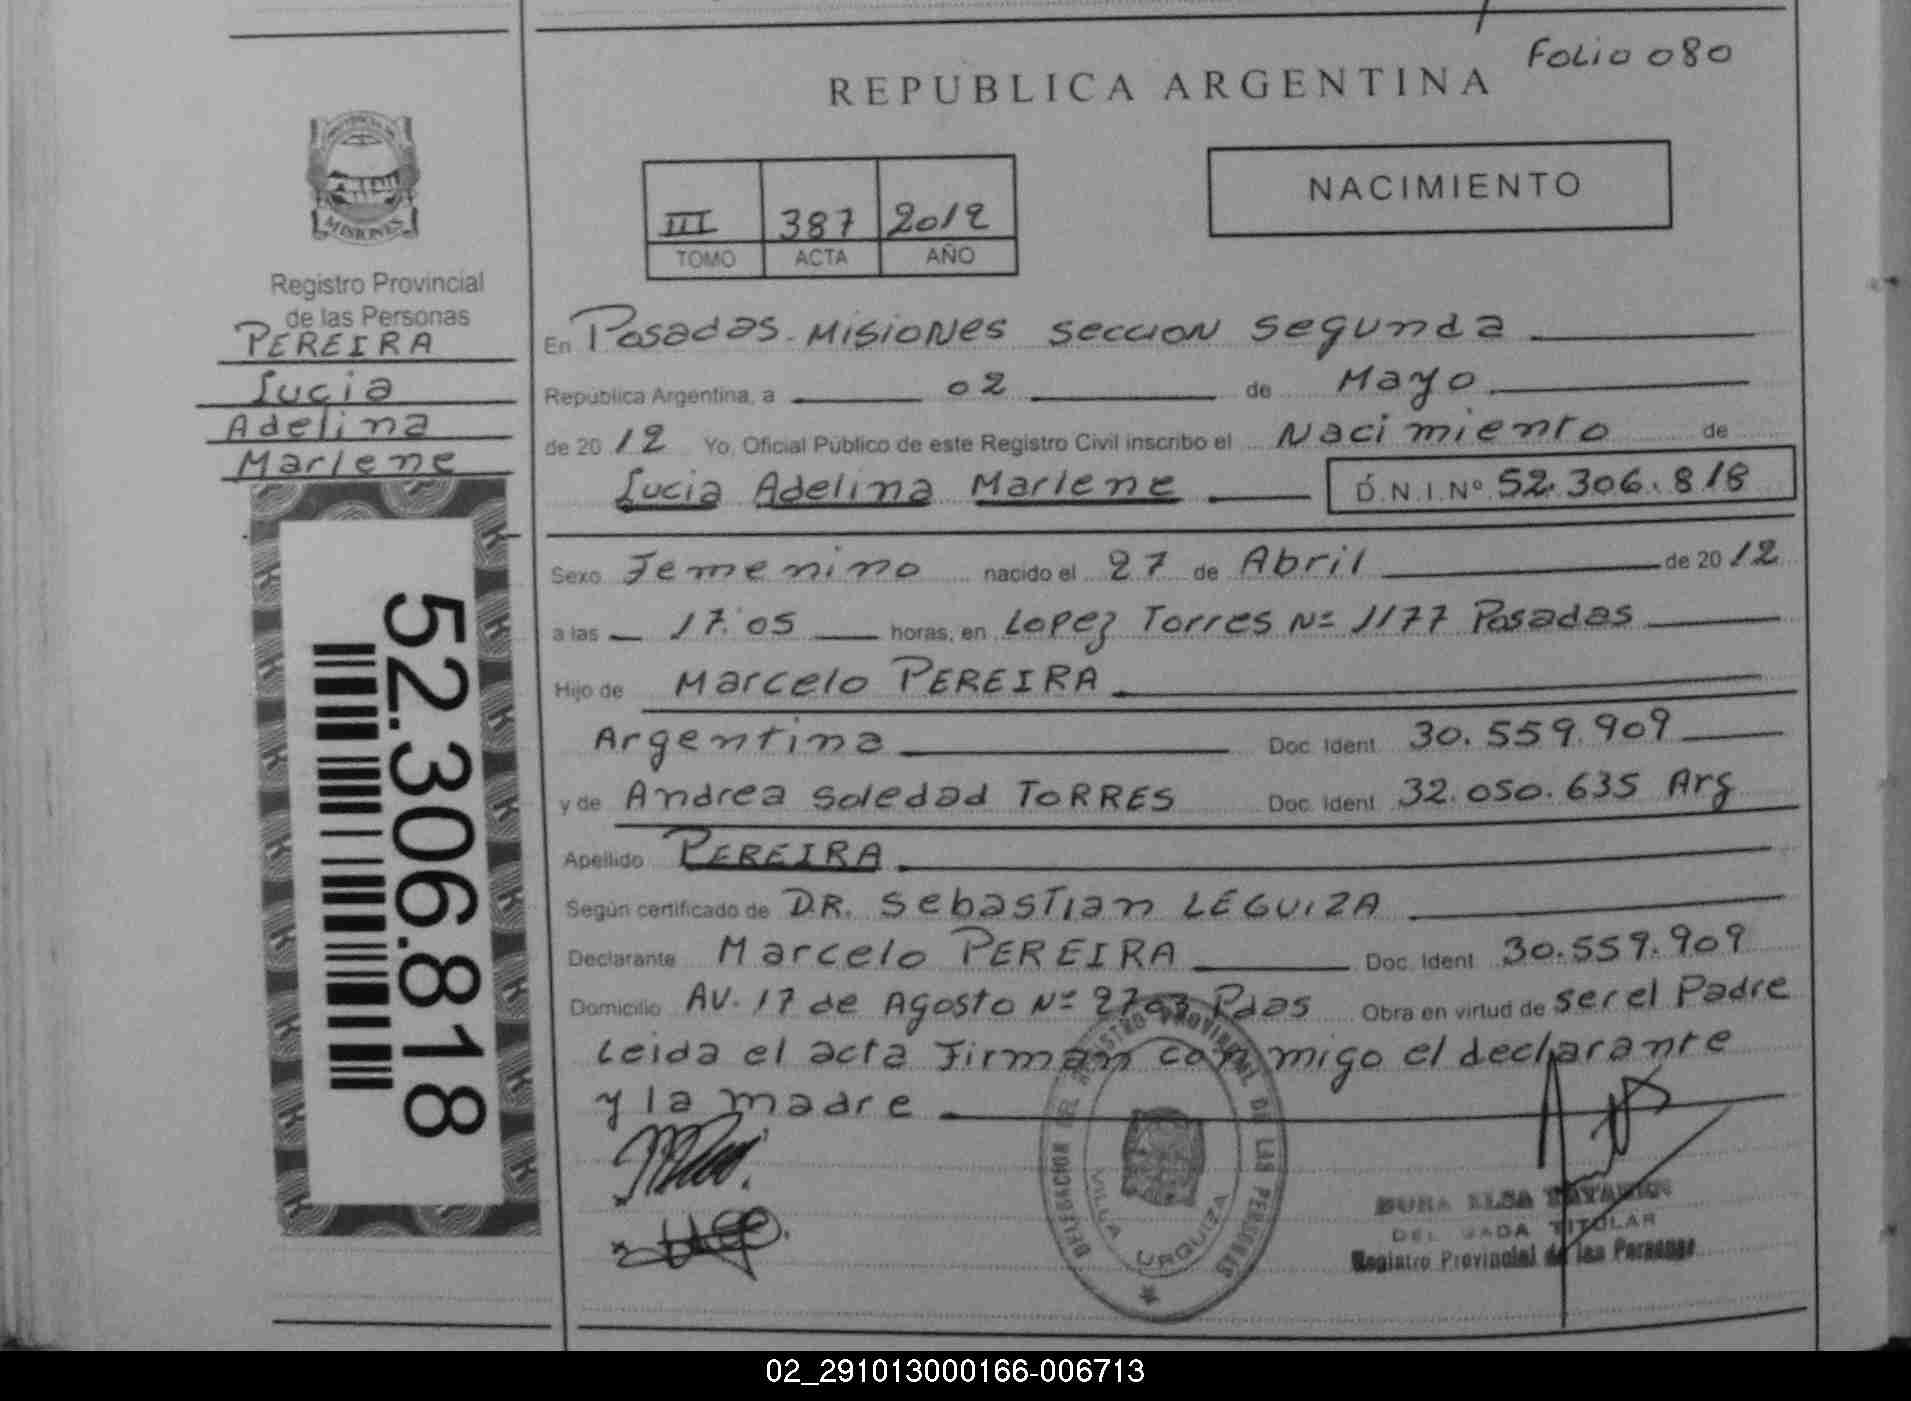 FOLIO 080
REPUBLICA ARGENTINA
PROVINCIA DE
MISIONES
III 387 2012
TOMO ACTA AÑO
NACIMIENTO
Registro Provincial
de las Personas
PEREIRA
Lucia
Adelina
Marlene
52.306.818
En Posadas - Misiones seccion segunda
República Argentina, a 02 de Mayo
de 20 12 Yo, Oficial Público de este Registro Civil inscribo el Nacimiento de
Lucia Adelina Marlene D.N.I.Nº 52.306.818
Sexo Femenino nacido el 27 de Abril de 20 12
a las 17:05 horas, en Lopez Torres Nº 1177 Posadas
Hijo de Marcelo PEREIRA
Argentina Doc. Ident. 30.559.909
y de Andrea Soledad TORRES Doc. Ident. 32.050.635 Arg
Apellido PEREIRA
Según certificado de DR. Sebastian LEGUIZA
Declarante Marcelo PEREIRA Doc. Ident. 30.559.909
Domicilio AV. 17 de Agosto Nº 2703 Pdas Obra en virtud de ser el Padre
Leida el acta firman conmigo el declarante
y la madre
DELEGACION DEL REGISTRO PROVINCIAL DE LAS PERSONAS
VILLA URQUIZA
ELSA
TITULAR
Registro Provincial de las Personas
02_291013000166-006713